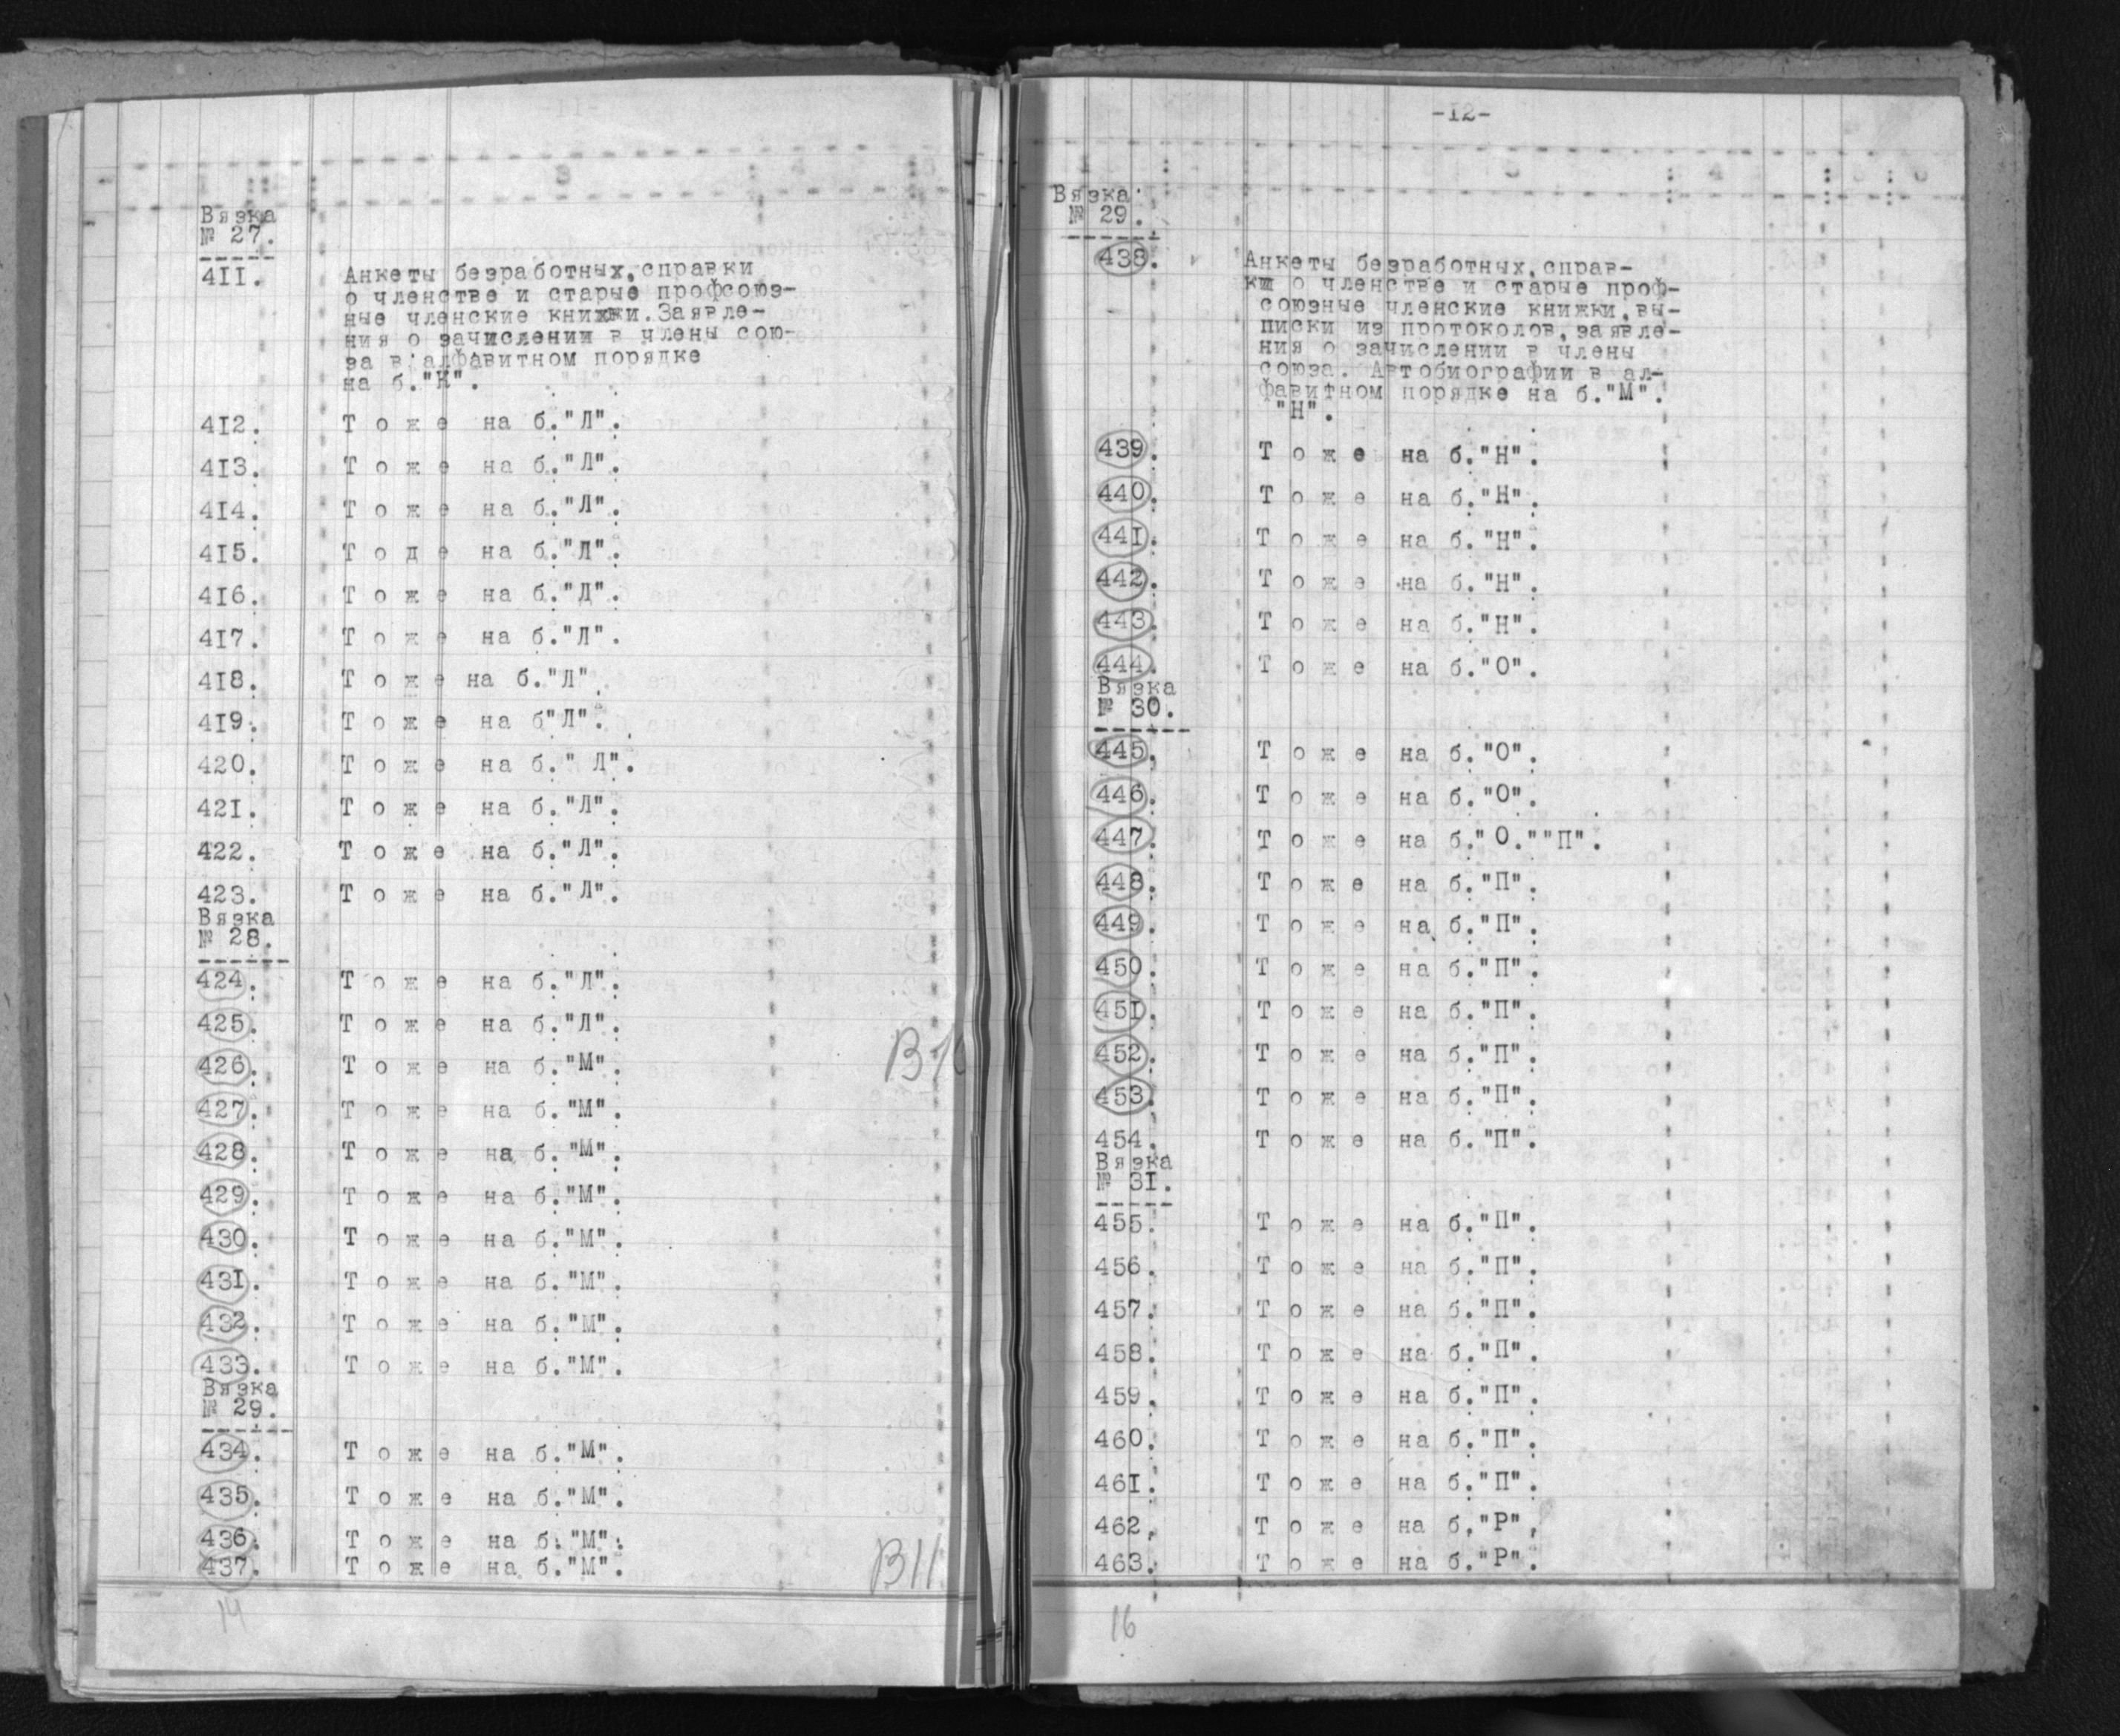 Вязка
№ 27.
411. Анкеты безработных,справки
о членстве и старые профсоюз-
ные членские книжки.Заявле-
ния о зачислении в члены сою-
за в алфавитном порядке
на б."К".
412. Т о ж е на б."Л".
413. Т о ж е на б."Л".
414. Т о ж е на б."Л".
415. Т о д е на б."Л".
416. Т о ж е на б."Л".
417. Т о ж е на б."Л".
418. Т о ж е на б."Л".
419. Т о ж е на б"Л".
420. Т о ж е на б." Л".
421. Т о ж е на б."Л".
422. Т о ж е на б."Л".
423. Т о ж е на б."Л".
Вязка
№ 28.
424. Т о ж е на б."Л".
425. Т о ж е на б."Л".
426. Т о ж е на б."М".
427. Т о ж е на б."М".
428. Т о ж е на б."М".
429. Т о ж е на б."М".
430. Т о ж е на б."М".
431. Т о ж е на б."М".
432. Т о ж е на б."М".
433. Т о ж е на б."М".
Вязка
№ 29.
434. Т о ж е на б."М".
435. Т о ж е на б."М".
436. Т о ж е на б."М".
437. Т о ж е на б."М".
В11
14
-12-
Вязка
№ 29.
438. Анкеты безработных,справ-
ки о членстве и старые проф-
союзные членские книжки,вы-
писки из протоколов,заявле-
ния о зачислении в члены
союза. Автобиографии в ал-
фавитном порядке на б."М".
"Н".
439. Т о ж е на б."Н".
440. Т о ж е на б."Н".
441. Т о ж е на б."Н".
442. Т о ж е на б."Н".
443. Т о ж е на б."Н".
444. Т о ж е на б."О".
Вязка
№ 30.
445. Т о ж е на б."О".
446. Т о ж е на б."О".
447. Т о ж е на б." О.""П".
448. Т о ж е на б."П".
449. Т о ж е на б."П".
450. Т о ж е на б."П".
451. Т о ж е на б."П".
452. Т о ж е на б."П".
453. Т о ж е на б."П".
454. Т о ж е на б."П".
Вязка
№ 31.
455. Т о ж е на б."П".
456. Т о ж е на б."П".
457. Т о ж е на б."П".
458. Т о ж е на б."П".
459. Т о ж е на б."П".
460. Т о ж е на б."П".
461. Т о ж е на б."П".
462. Т о ж е на б."Р".
463. Т о ж е на б."Р".
16